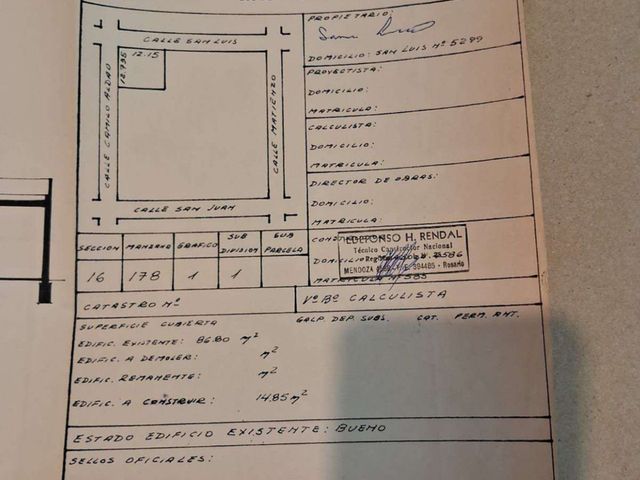 CALLE SAN LUIS
12.15
12.735
CALLE CAMILO ALDAO
CALLE MATIENZO
CALLE SAN JUAN
PROPIETARIO:
DOMICILIO: SAN LUIS Nº 5299
PROYECTISTA:
DOMICILIO:
MATRICULA:
CALCULISTA:
DOMICILIO:
MATRICULA:
DIRECTOR DE OBRAS:
DOMICILIO:
MATRICULA:
ILDEFONSO H. RENDAL
Técnico Constructor Nacional
DOMICILIO
MENDOZA
394485 - Rosario
MATRICULA Nº 585
SECCION MANZANA GRAFICO SUB DIVISION SUB PARCELA
16 178 1 1
CATASTRO Nº
Vº Bº CALCULISTA
SUPERFICIE CUBIERTA GALP. DEP. SUBS. CAT. PERM. ANT.
EDIFIC. EXISTENTE: 86.80 m²
EDIFIC. A DEMOLER: m²
EDIFIC. REMANENTE: m²
EDIFIC. A CONSTRUIR: 14.85 m²
ESTADO EDIFICIO EXISTENTE: BUENO
SELLOS OFICIALES: